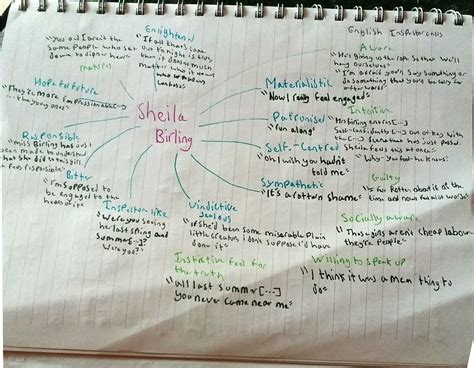 English Inspector Calls
Enlightened
"If all that's come
out tonight is true,
then it doesn't much
matter who it was
who made us
confess"
"you and I aren't the
same people who sat
down to dinner here"
matures
Hope for future
"They're more impressionable"
"the young ones"
Responsible
"miss Birling has just
been made to understand
what she did to this girl.
feels responsible"
Bitter
"I'm supposed to
be engaged to the
hero of it"
Inspector like
"Were you seeing
her last spring and
summer[...]?
Were you?"
Sheila
Birling
Vindictive
Jealous
"if she'd been some miserable plain
little creature, I don't suppose I'd have
done it"
Instinctive feel for
the truth
"all last summer [...]
you never came near me"
Materialistic
"Now I really feel engaged"
Patronised
"run along"
Self-Centred
"Oh I wish you hadn't
told me"
Sympathetic
"It's a rotten shame"
Aware
"He's giving us the rope so that we'll
hang ourselves"
"I'm afraid you'll say something or
do something that you'll be sorry for
afterwards"
Intuitive
Mrs Birling enters [...]
self-confidently [...] out of key with
the [...] scene that has just passed.
Sheila feels this at once:
"Why - you fool - he knows"
Guilty
time and now
Socially aware
"These girls aren't cheap labour
they're people"
Willing to speak up
"I think it was a mean thing to
do"